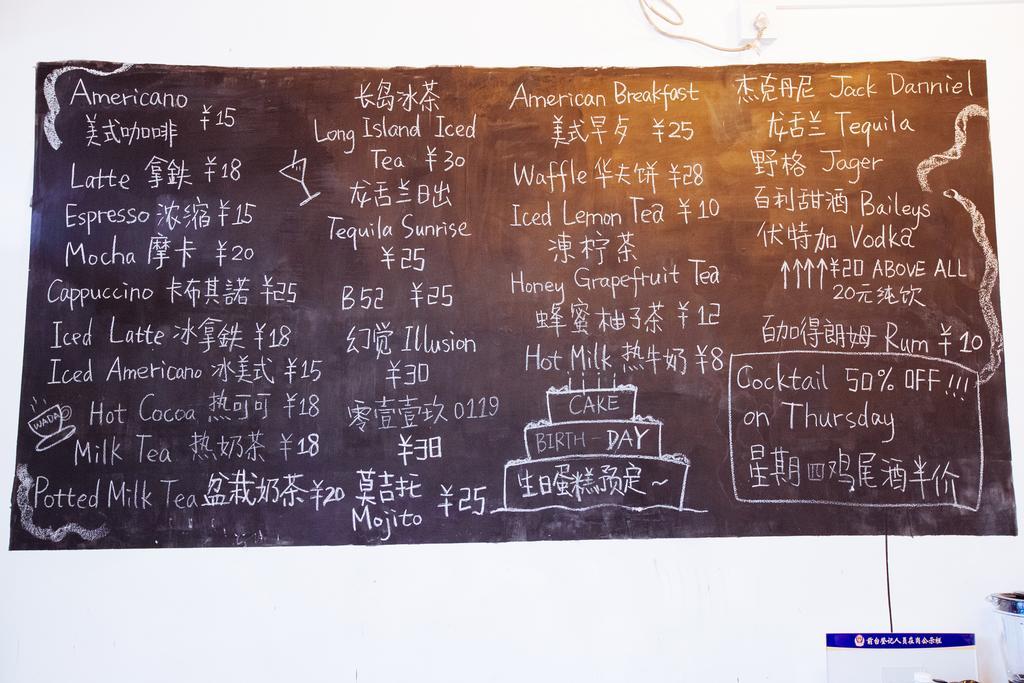 Americano
美式咖啡 ¥15
Latte 拿鉄 ¥18
Espresso 浓缩 ¥15
Mocha 摩卡 ¥20
Cappuccino 卡布其諾 ¥25
Iced Latte 冰拿鉄 ¥18
Iced Americano 冰美式 ¥15
WADA
Hot Cocoa 热可可 ¥18
Milk Tea 热奶茶 ¥18
Potted Milk Tea 盆栽奶茶 ¥20
长岛冰茶
Long Island Iced
Tea ¥30
龙舌兰日出
Tequila Sunrise
¥25
B52 ¥25
幻觉 Illusion
¥30
零壹壹玖 0119
¥38
莫吉托
Mojito ¥25
American Breakfast
美式早歺 ¥25
Waffle 华夫饼 ¥28
Iced Lemon Tea ¥10
凍柠茶
Honey Grapefruit Tea
蜂蜜柚子茶 ¥12
Hot Milk 热牛奶 ¥8
CAKE
BIRTH-DAY
生日蛋糕预定~
杰克丹尼 Jack Danniel
龙舌兰 Tequila
野格 Jager
百利甜酒 Baileys
伏特加 Vodka
↑↑↑↑¥20 ABOVE ALL
20元纯饮
百加得朗姆 Rum ¥10
Cocktail 50% OFF!!!
on Thursday
星期四鸡尾酒半价
前台登记人员在岗公示栏